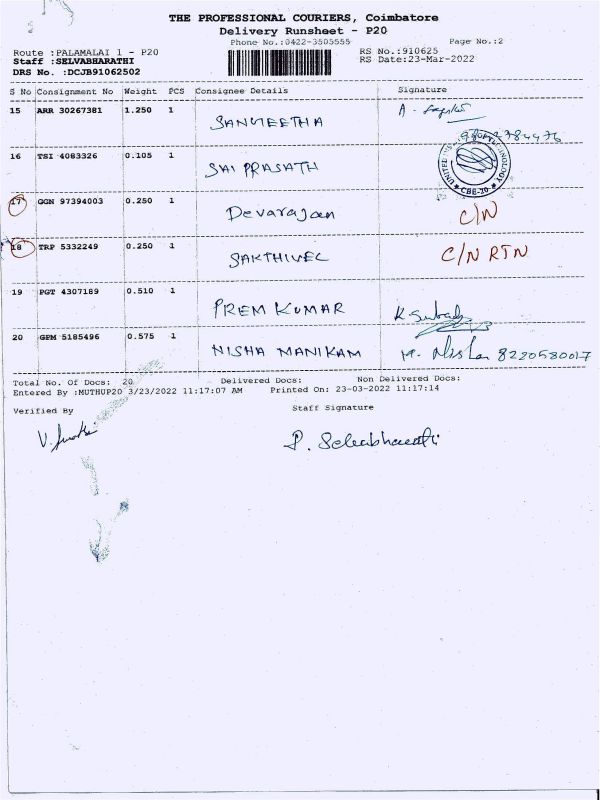 THE PROFESSIONAL COURIERS, Coimbatore
Delivery Runsheet - P20
Phone No.:0422-3505555 Page No.:2
Route :PALAMALAI 1 - P20 RS No.:910625
Staff :SELVABHARATHI RS Date:23-Mar-2022
DRS No. :DCJB91062502
S No Consignment No Weight PCS Consignee Details Signature
15 ARR 30267381 1.250 1 SANGEETHA A.
16 TSI 4083326 0.105 1 SAI PRASATH
CBE-20
17 GGN 97394003 0.250 1 Devarajan C/N
18 TRP 5332249 0.250 1 SAKTHIVEL C/N RTN
19 PGT 4307189 0.510 1 PREM KUMAR K
20 GPM 5185496 0.575 1 NISHA MANIKAM M. Nisha 8220580017
Total No. Of Docs: 20 Delivered Docs: Non Delivered Docs:
Entered By :MUTHUP20 3/23/2022 11:17:07 AM Printed On: 23-03-2022 11:17:14
Verified By Staff Signature
P. Selvabharathi